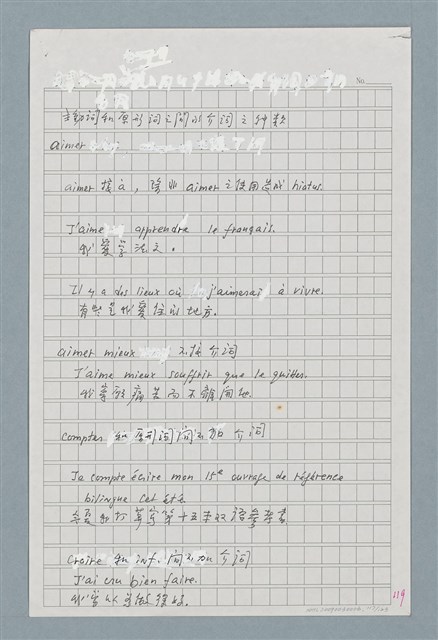 No.
主動詞和原形詞之間的介詞之种类
aimer
aimer 接 à, 除非 aimer 之使用造成 hiatus.
J'aime apprendre le français.
我爱学法文。
Il y a des lieux où j'aimerai à vivre.
有些是我爱住的地方。
aimer mieux 不接介詞
J'aime mieux souffrir que le quitter.
我寧願痛苦而不離開他.
compter 和原形詞间不加介詞
Je compte écrire mon 15e ouvrage de référence
bilingue cet été
今夏我打算写第十五本双语參考書
croire 和 inf. 间不加介詞
J'ai cru bien faire.
119